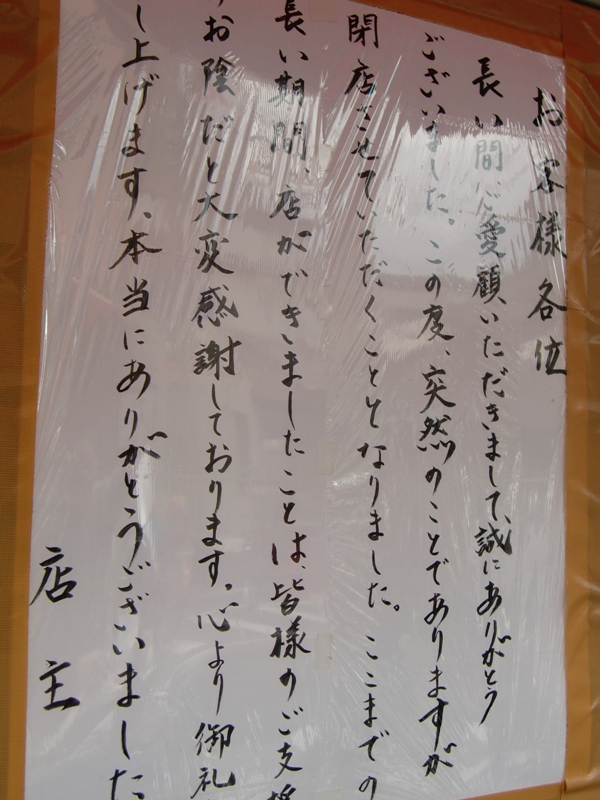 お客様各位
長い間ご愛顧いただきまして、誠にありがとう
ございました。この度、突然のことでありますが
閉店させていただくことゝなりました。ここまでの
長い期間、店ができましたことは、皆様のご支援
お陰だと大変感謝しております。心より御礼
し上げます、本当にありがとうございました
店主